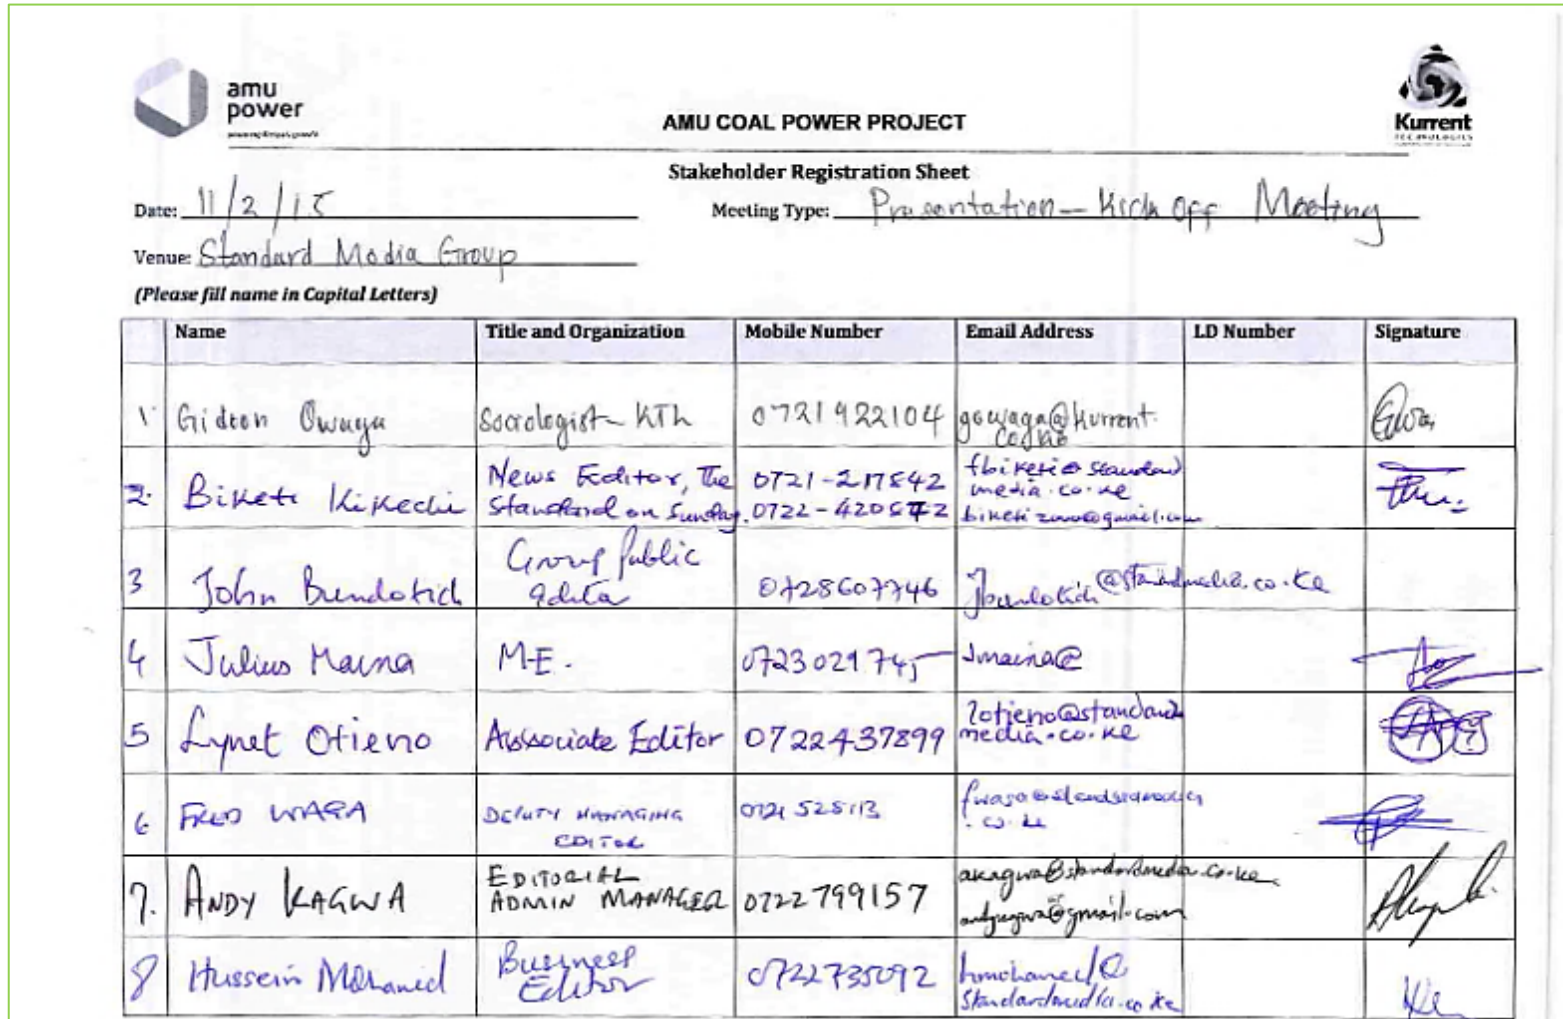 amu
power
Kurrent
TECHNOLOGIES
AMU COAL POWER PROJECT
Stakeholder Registration Sheet
Date: 11/2/15 Meeting Type: Presentation - Kick Off Meeting
Venue: Standard Media Group
(Please fill name in Capital Letters)
Name Title and Organization Mobile Number Email Address LD Number Signature
1 Gideon Owaga Sociologist - KTL 0721922104 gowaga@kurrent.
2. Biketi Kikechi News Editor, The 0721-217542 fbiketi@standard
Standard on Sunday. 0722-420572 media.co.ke
3 John Bundotich Group Public 0728607746 Jbundotich@standardmedia.co.ke
Editor
4 Julius Maina M.E. 0723029745 Jmaina@
5 Lynet Otieno Associate Editor 0722437899 lotieno@standard
media.co.ke
6 FRED WAGA DEPUTY MANAGING 0721 528113 fwaga@standardmedia
EDITOR .co.ke
7. ANDY KAGWA EDITORIAL 0722799157 akagwa@standardmedia.co.ke
ADMIN MANAGER @gmail.com
8 Hussein Mohamed Business 0722735092 hmohamed@
Editor standardmedia.co.ke